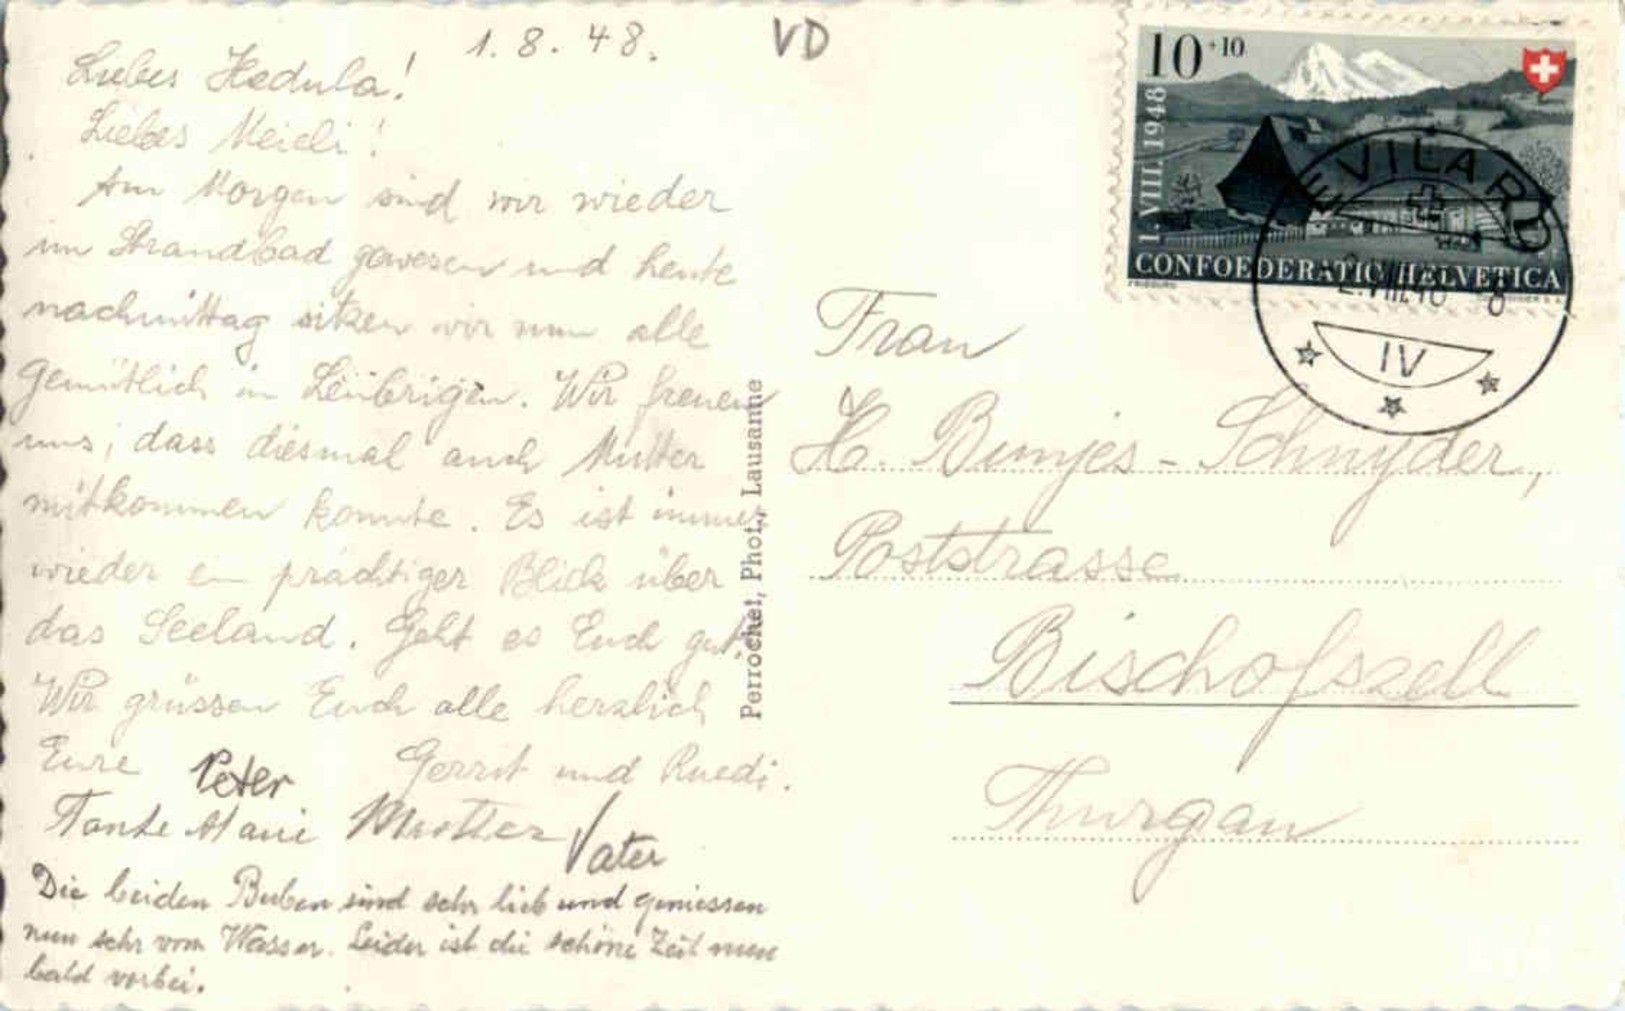 1. 8. 48.
VD
Liebes Hedula!
Liebes Meieli!
Am Morgen sind wir wieder
im Strandbad gewesen und heute
nachmittag sitzen wir nun alle
gemütlich in Leubrigen. Wir freuen
uns, dass diesmal auch Mutter
mitkommen konnte. Es ist immer
wieder ein prächtiger Blick über
das Seeland. Geht es Euch gut?
Wir grüssen Euch alle herzlich
Eure Peter Gerrit und Ruedi.
Tante Marie Mutter Vater
Die beiden Buben sind sehr lieb und geniessen
nun sehr vom Wasser. Leider ist die schöne Zeit nun
bald vorbei.
Perrochet, Phot., Lausanne
10+10
1. VIII. 1948
CONFOEDERATIO HELVETICA
EVILARD
IV
Frau
H. Bunjes-Schnyder,
Poststrasse
Bischofszell
Thurgau